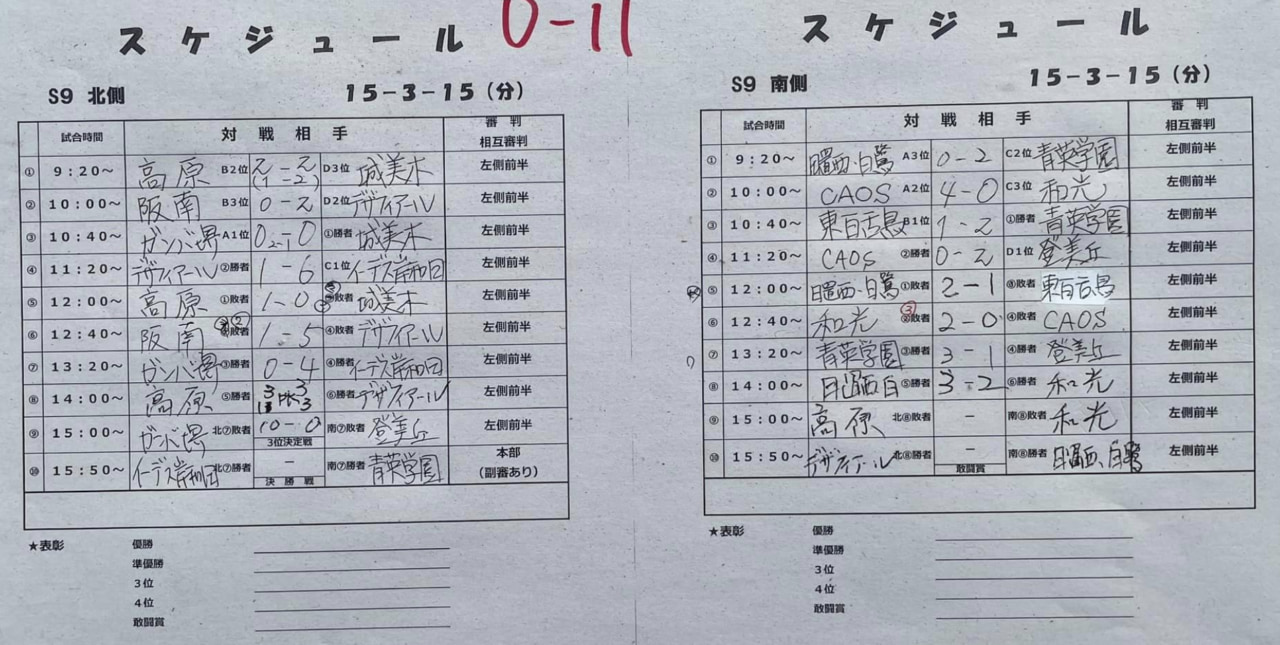 0-11
スケジュール
S9 北側 15-3-15(分)
試合時間 対戦相手 審判 相互審判
① 9:20~ 高原 B2位 2-2 (1-2) D3位 城美木 左側前半
② 10:00~ 阪南 B3位 0-2 D2位 デザフィアール 左側前半
③ 10:40~ ガンバ堺 A1位 0-0 2-1 ①勝者 城美木 左側前半
④ 11:20~ デサフィアール ②勝者 1-6 C1位 イーデス岸和田 左側前半
⑤ 12:00~ 高原 ①敗者 1-0 敗者 城美木 左側前半
⑥ 12:40~ 阪南 ② 敗者 1-5 ④敗者 デザフィアール 左側前半
⑦ 13:20~ ガンバ堺 ③勝者 0-4 ④勝者 イーデス岸和田 左側前半
⑧ 14:00~ 高原 ⑤勝者 PK ⑥勝者 デザフィアール 左側前半
⑨ 15:00~ ガンバ堺 北⑦敗者 10-0 3位決定戦 南⑦敗者 登美丘 左側前半
⑩ 15:50~ イーデス岸和田 北⑦勝者 - 決勝戦 南⑦勝者 青英学園 本部 (副審あり)
★表彰 優勝
準優勝
3位
4位
敢闘賞
スケジュール
S9 南側 15-3-15(分)
試合時間 対戦相手 審判 相互審判
① 9:20~ 日置西・白鷺 A3位 0-2 C2位 青英学園 左側前半
② 10:00~ CAOS A2位 4-0 C3位 和光 左側前半
③ 10:40~ 東百舌鳥 B1位 1-2 ①勝者 青英学園 左側前半
④ 11:20~ CAOS ②勝者 0-2 D1位 登美丘 左側前半
⑤ 12:00~ 日置西・白鷺 ①敗者 2-1 ③敗者 東百舌鳥 左側前半
⑥ 12:40~ 和光 ③ ②敗者 2-0 ④敗者 CAOS 左側前半
⑦ 13:20~ 青英学園 ③勝者 3-1 ④勝者 登美丘 左側前半
⑧ 14:00~ 日置西白 ⑤勝者 3-2 ⑥勝者 和光 左側前半
⑨ 15:00~ 高原 北⑧敗者 - 南⑧敗者 和光 左側前半
⑩ 15:50~ デザフィアール 北⑧勝者 - 敢闘賞 南⑧勝者 日置西、白鷺 左側前半
★表彰 優勝
準優勝
3位
4位
敢闘賞